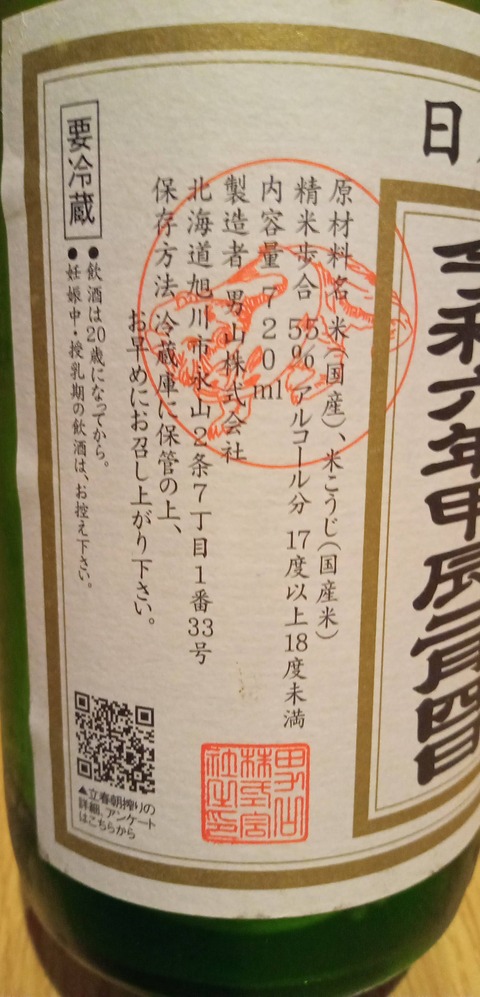 日
令和六年甲辰二月四日
原材料名 米(国産)、米こうじ(国産米)
精米歩合 55% アルコール分 17度以上18度未満
内容量 720ml
製造者 男山株式会社
北海道旭川市永山2条7丁目1番33号
保存方法 冷蔵庫に保管の上、
お早めにお召し上がり下さい。
要冷蔵
●飲酒は20歳になってから。
●妊娠中・授乳期の飲酒は、お控え下さい。
▲立春朝搾りの
詳細、アンケート
はこちらから
男山
株式会
社之印